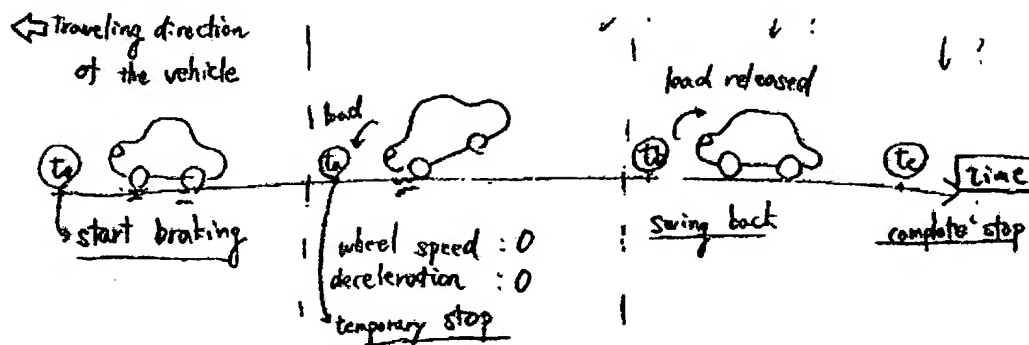 Traveling direction
of the vehicle
load
load released
ta
tb
tc
Time
start braking
wheel speed : 0
deceleration : 0
temporary stop
swing back
complete stop